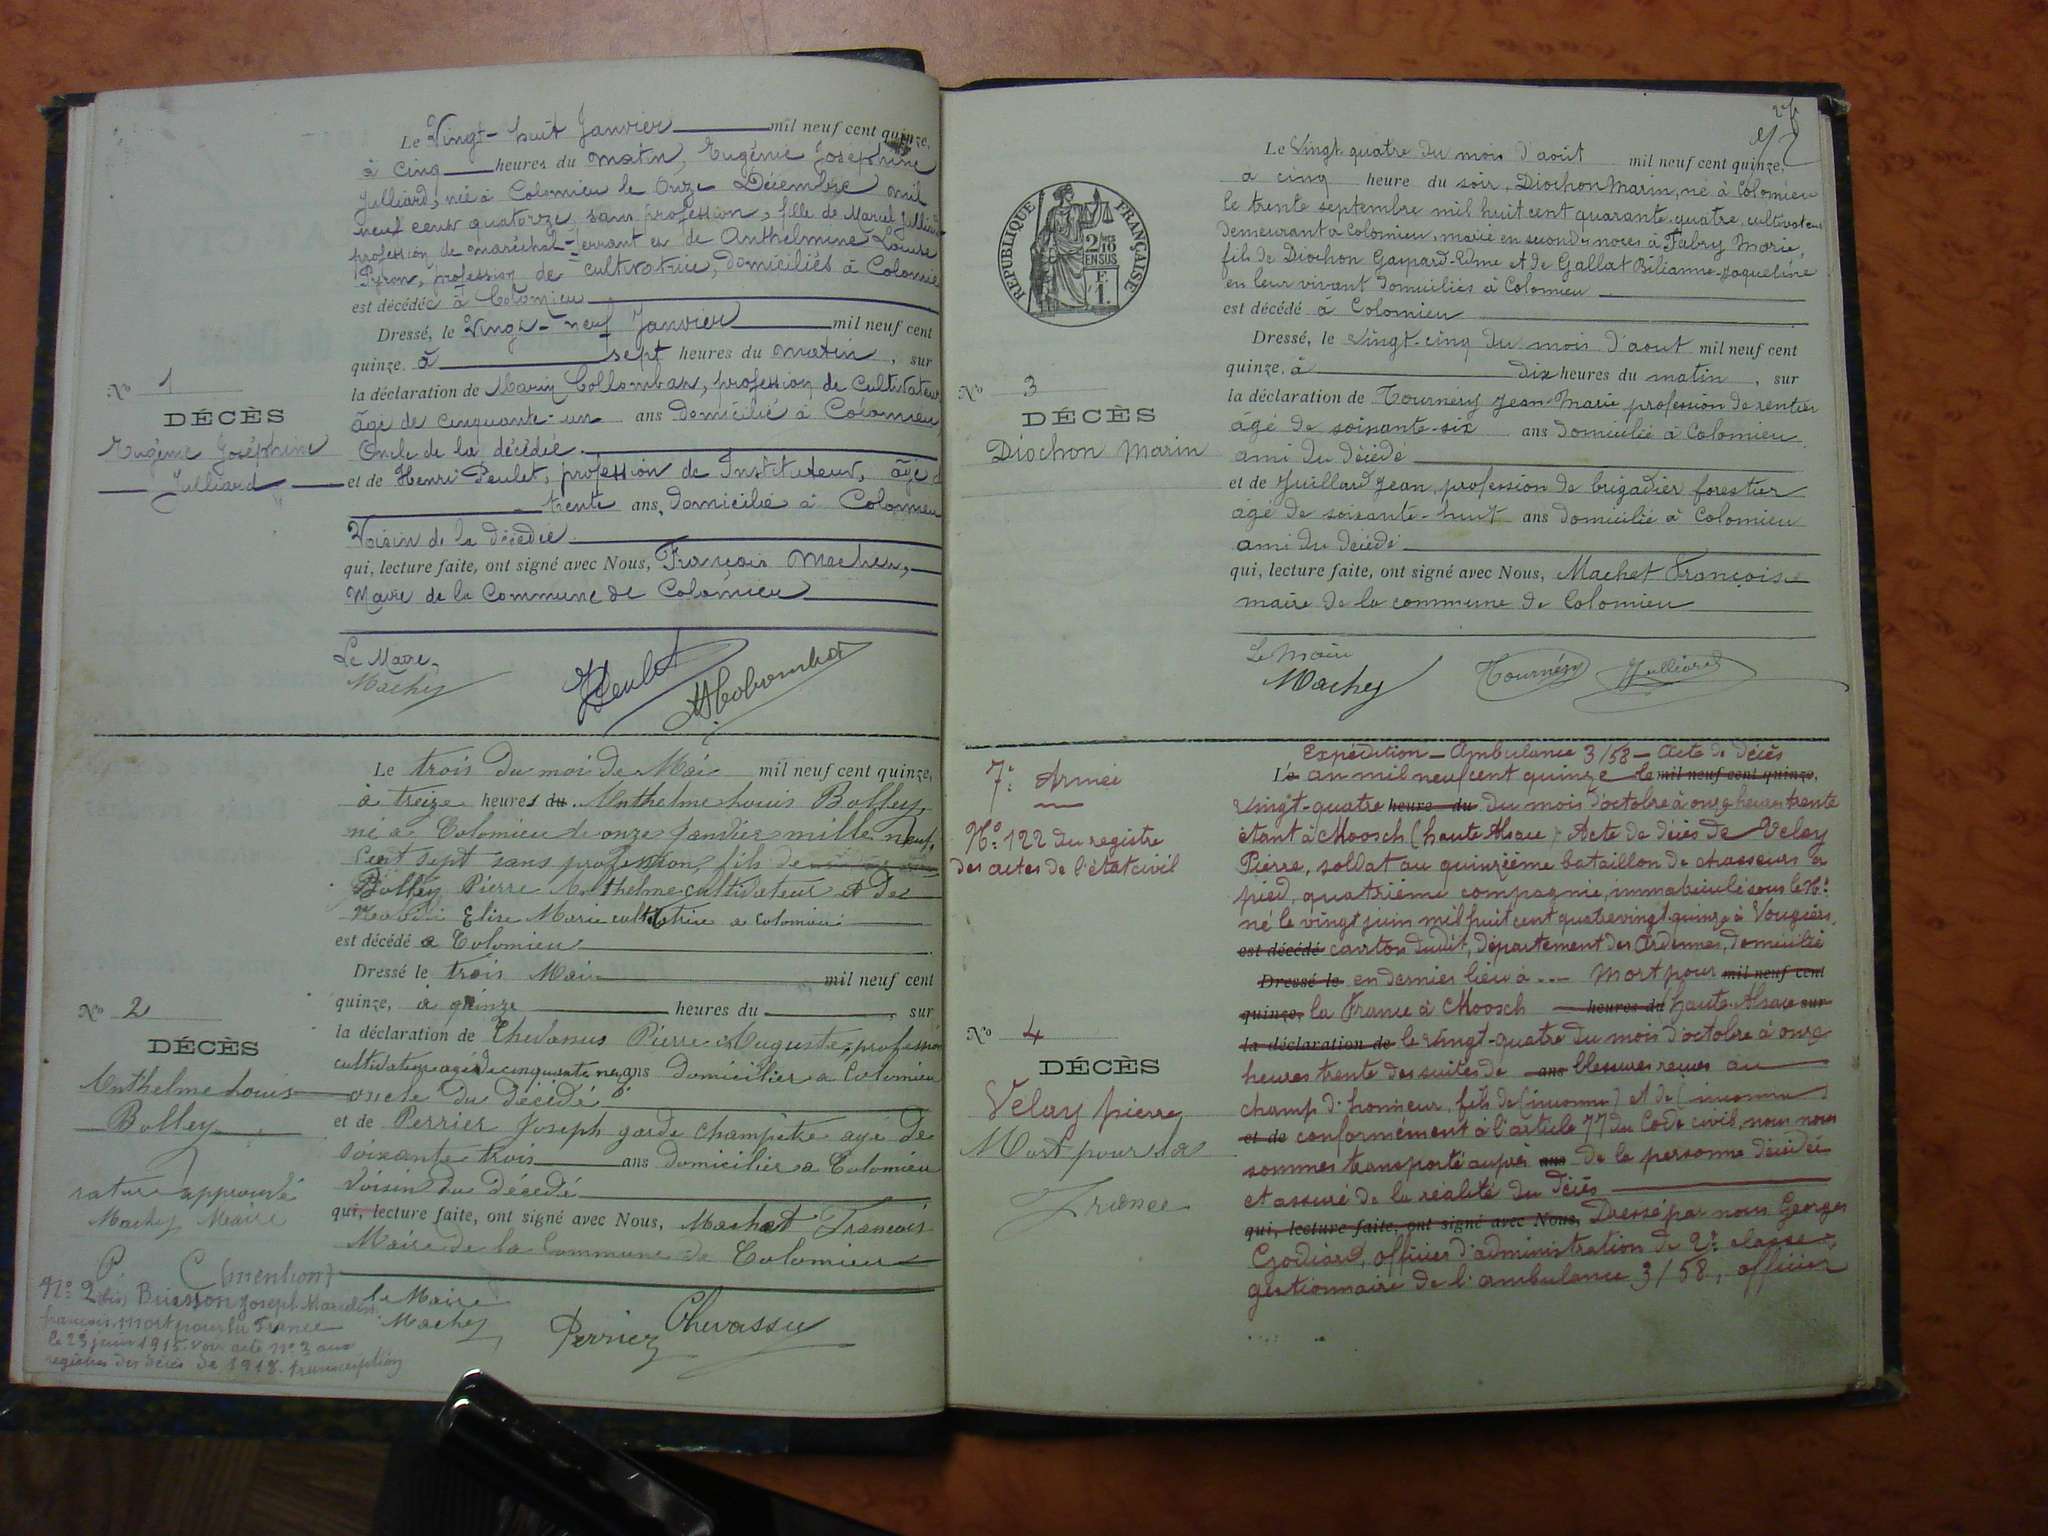 Le Vingt-huit Janvier mil neuf cent quinze,
à cinq heures du matin, Eugénie Joséphine
Julliard, née à Colomieu le Onze Décembre mil
neuf cent quatorze, sans profession, fille de Marcel Julliard
profession de maréchal-ferrant et de Anthelmine Louise
Pyron, profession de cultivatrice, domiciliés à Colomieu
est décédée à Colomieu
Dressé, le Vingt-neuf Janvier mil neuf cent
quinze, à sept heures du matin, sur
la déclaration de Marin Collomban, profession de Cultivateur
âgé de cinquante-un ans domicilié à Colomieu,
Oncle de la décédée
et de Henri Peulet, profession de Instituteur, âgé d
trente ans, domicilié à Colomieu
Voisin de la décédée
qui, lecture faite, ont signé avec Nous, François Machet,
Maire de la Commune de Colomieu
Nº 1
DÉCÈS
Eugénie Joséphine
Julliard
Le Maire,
Machet
Le trois du moi de Mai mil neuf cent quinze,
à treize heures du Anthelme Louis Bolley,
né a Colomieu le onze Janvier mille neuf
Cent sept sans profession, fils de
Bolley Pierre Anthelme cultivateur et de
Elise Marie cultivatrice a Colomieu
est décédé a Colomieu
Dressé le trois Mai mil neuf cent
quinze, à quinze heures du , sur
la déclaration de Chevassus Pierre Auguste, profession
cultivateur agé de cinquante neuf ans domicilier a Colomieu
oncle du décédé
et de Perrier Joseph garde champêtre agé de
soixante trois ans domicilier a Colomieu
Voisin du décédé
qui, lecture faite, ont signé avec Nous, Machet François
Maire de la Commune de Colomieu
Nº 2
DÉCÈS
Anthelme Louis
Bolley
rature approuvé
Machet Maire
(mention)
Nº 2 bis Brisson Joseph
françois mort pour la France
le 23 juin 1915. Voir acte nº 3 aux
registres des décès de 1918. transcription
Le Maire
Machet
Perrier
Chevassu
Le Vingt quatre du mois d'août mil neuf cent quinze,
a cinq heure du soir, Diochon Marin, né à Colomieu
le trente septembre mil huit cent quarante-quatre, cultivateur
demeurant à Colomieu, marié en secondes noces à Fabry Marie,
fils de Diochon Gaspard et de Gallat Jaqueline
en leur vivant domiciliés à Colomieu
est décédé à Colomieu
Dressé, le vingt-cinq du mois d'aout mil neuf cent
quinze, à dix heures du matin, sur
la déclaration de Tournery Jean-Marie profession de rentier
âgé de soixante-six ans domicilié à Colomieu
ami du décédé
et de Juillard Jean, profession de brigadier forestier
âgé de soixante-huit ans domicilié à Colomieu
ami du décédé
qui, lecture faite, ont signé avec Nous, Machet François
maire de la commune de Colomieu
RÉPUBLIQUE FRANÇAISE
2/10es
EN SUS
F
1.
Nº 3
DÉCÈS
Diochon Marin
Le Maire
Machet
Tournéry
Julliard
Expédition - Ambulance 3/58 - Acte de décès
L'an mil neuf cent quinze le mil neuf cent quinze,
vingt-quatre heure du du mois d'octobre à onze heures trente
étant à Moosch (haute Alsace) Acte de décès de Velay
Pierre, soldat au quinzième bataillon de chasseurs à
pied, quatrième compagnie, immatriculé sous le Nº
né le vingt juin mil huit cent quatre vingt quinze à Vougiers,
est décédé canton dudit, département des Ardennes, domicilié
Dressé le en dernier lieu à ... Mort pour mil neuf cent
quinze, la France à Moosch heures du haute-Alsace sur
la déclaration de le vingt-quatre du mois d'octobre à onze
heures trente des suites de ans blessures reçues au
champ d'honneur, fils de (inconnu) et de (inconnue)
et de conformément à l'article 77 du Code civil, nous nous
sommes transporté auprès ans de la personne décédée
et assuré de la réalité du décès
qui, lecture faite, ont signé avec Nous, Dressé par nous Georges
Godiard, officier d'administration de 2e classe
gestionnaire de l'ambulance 3/58, officier
7e Armée
Nº 122 du registre
des actes de l'état civil
Nº 4
DÉCÈS
Velay pierre
Mort pour la
France